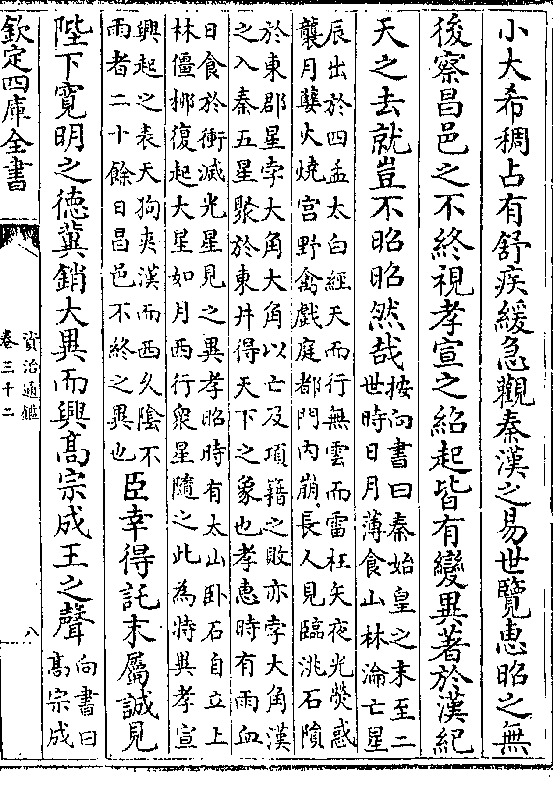 小大希稠占有舒疾緩急觀秦漢之易世覽惠昭之無
後察昌邑之不終視孝宣之紹起皆有變異著於漢紀
天之去就豈不昭昭然哉
按向書曰秦始皇之末至二
世時日月薄食山林淪亡星
辰出於四孟太白經天而行無雲而雷枉矢夜光熒惑
襲月孽火燒宮野禽戲庭都門内崩長人見臨洮石隕
於東郡星孛大角大角以亡及項籍之敗亦孛大角漢
之入秦五星聚於東井得天下之象也孝惠時有雨血
日食於衝滅光星見之異孝昭時有太山卧石自立上
林僵桞復起大星如月西行衆星隨之此為特異孝宣
興起之表天狗夾漢而西久隂不
雨者二十餘日昌邑不終之異也
臣幸得託末屬誠見
陛下寛明之徳冀銷大異而興髙宗成王之聲
向書曰
髙宗成
欽定四庫全書
資治通鑑
卷三十二
八